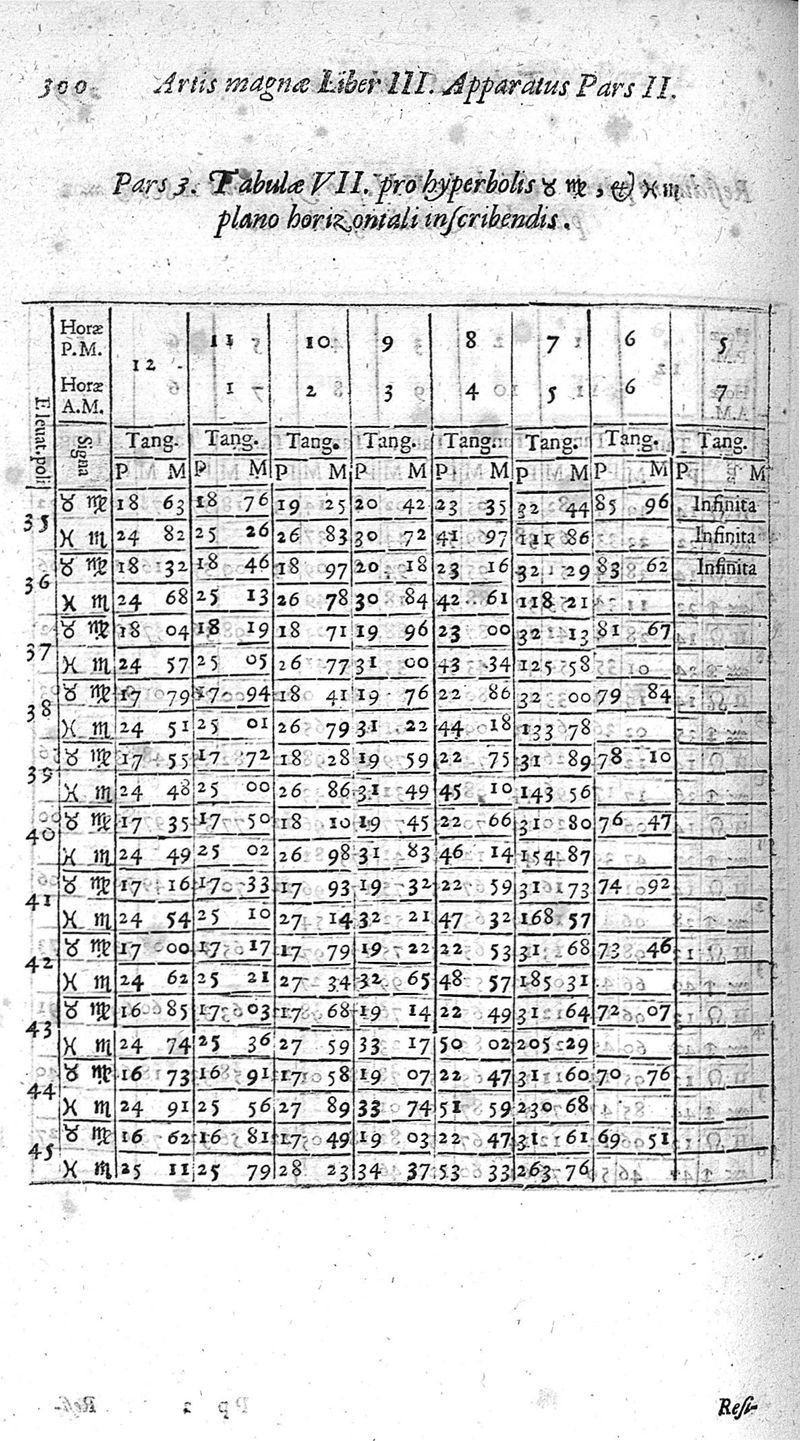 300 Artis magnæ Liber III. Apparatus Pars II.
Pars 3. Tabulæ VII. pro hyperbolis ♉ ♍, & ♓ ♏
plano horizontali inscribendis.
Eleuat. poli Signa Horæ P.M. 12 11 10 9 8 7 6 5
Horæ A.M. 1 2 3 4 5 6 7
Tang. Tang. Tang. Tang. Tang. Tang. Tang. Tang.
P M P M P M P M P M P M P M P M
35 ♉ ♍ 18 63 18 76 19 25 20 42 23 35 32 44 85 96 Infinita
♓ ♏ 24 82 25 26 26 83 30 72 41 97 111 86 Infinita
36 ♉ ♍ 18 32 18 46 18 97 20 18 23 16 32 29 83 62 Infinita
♓ ♏ 24 68 25 13 26 78 30 84 42 61 118 21
37 ♉ ♍ 18 04 18 19 18 71 19 96 23 00 32 13 81 67
♓ ♏ 24 57 25 05 26 77 31 00 43 34 125 58
38 ♉ ♍ 17 79 17 94 18 41 19 76 22 86 32 00 79 84
♓ ♏ 24 51 25 01 26 79 31 22 44 18 133 78
39 ♉ ♍ 17 55 17 72 18 28 19 59 22 75 31 89 78 10
♓ ♏ 24 48 25 00 26 86 31 49 45 10 143 56
40 ♉ ♍ 17 35 17 50 18 10 19 45 22 66 31 80 76 47
♓ ♏ 24 49 25 02 26 98 31 83 46 14 154 87
41 ♉ ♍ 17 16 17 33 17 93 19 32 22 59 31 73 74 92
♓ ♏ 24 54 25 10 27 14 32 21 47 32 168 57
42 ♉ ♍ 17 00 17 17 17 79 19 22 22 53 31 68 73 46
♓ ♏ 24 62 25 21 27 34 32 65 48 57 185 31
43 ♉ ♍ 16 85 17 03 17 68 19 14 22 49 31 64 72 07
♓ ♏ 24 74 25 36 27 59 33 17 50 02 205 29
44 ♉ ♍ 16 73 16 91 17 58 19 07 22 47 31 60 70 76
♓ ♏ 24 91 25 56 27 89 33 74 51 59 230 68
45 ♉ ♍ 16 62 16 81 17 49 19 03 22 47 31 61 69 51
♓ ♏ 25 11 25 79 28 23 34 37 53 33 263 76
Resi-